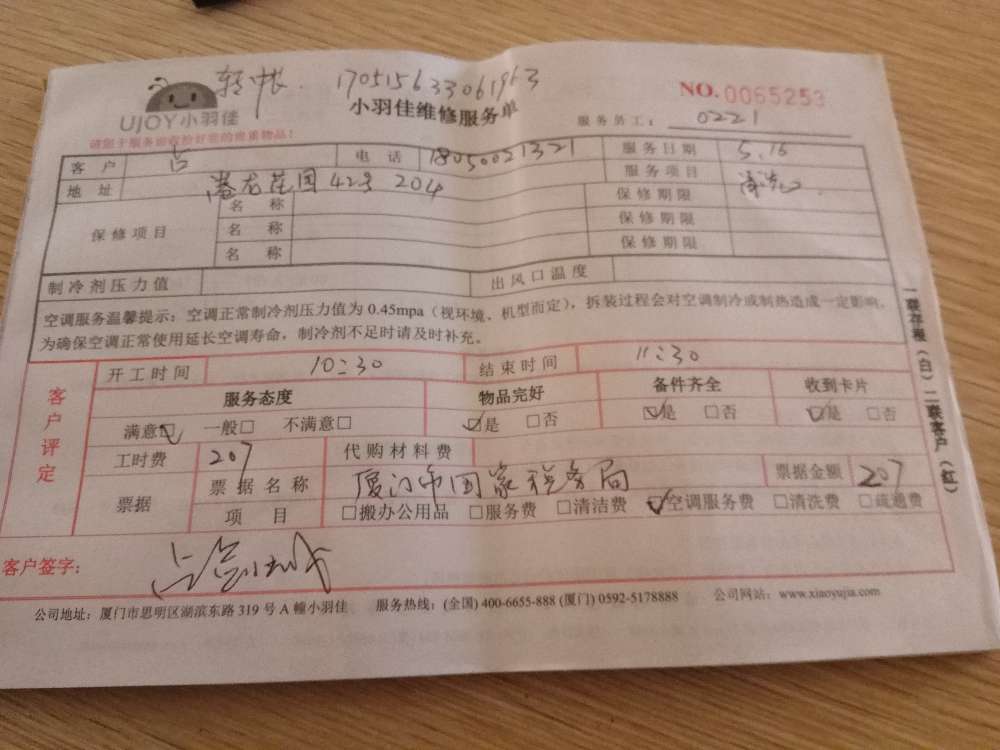 转帐. 170515633061963
UJOY小羽佳
小羽佳维修服务单
NO.0065253
请您于服务前收拾好您的贵重物品！
服务员工： 0221
客户 占 电话 18050021321 服务日期 5.16
地址 潘龙花园42号 204 服务项目 清洗
保修项目
名称 保修期限
名称 保修期限
名称 保修期限
制冷剂压力值 出风口温度
空调服务温馨提示：空调正常制冷剂压力值为 0.45mpa（视环境、机型而定），拆装过程会对空调制冷或制热造成一定影响，
为确保空调正常使用延长空调寿命，制冷剂不足时请及时补充。
客户评定
开工时间 10:30 结束时间 11:30
服务态度 物品完好 备件齐全 收到卡片
满意☑ 一般□ 不满意□ ☑是 □否 ☑是 □否 ☑是 □否
工时费 207 代购材料费
票据 票据名称 厦门市国家税务局 票据金额 207
项目 □搬办公用品 □服务费 □清洁费 ☑空调服务费 □清洗费 □疏通费
客户签字：
公司地址：厦门市思明区湖滨东路 319 号 A 幢小羽佳 服务热线：(全国) 400-6655-888 (厦门) 0592-5178888 公司网站：www.xiaoyujia.com
一联存根（白）二联客户（红）